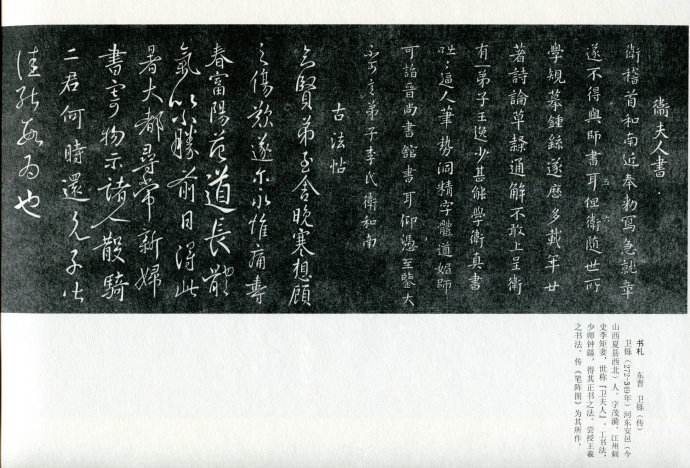 衛夫人書
衛稽首和南近奉勑寫急就章
遂不得與師書耳但衛隨世所
學規摹鍾繇遂歷多載年廿
著詩論草隸通解不敢上呈衛
有一弟子王逸少甚能學衛真書
咄咄逼人筆勢洞精字體遒媚師
可詣晉尚書館書耳仰憑至鑒大
不可言弟子李氏衛和南
古法帖
賢弟至舍晚寒想顧
之傷歎遂尔永惟痛壽
春富陽范道長
氣以勝前日得此
暑大都尋常新婦
書寄物示諸人散騎
二君何時還兄子
佳
为也
书札 东晋 卫铄(传)
卫铄(272-349年)河东安邑(今
山西夏县西北)人，字茂漪，江州刺
史李矩妻，世称“卫夫人”。工书法，
少师钟繇，得其正书之法，尝授王羲
之书法，传《笔阵图》为其所作。